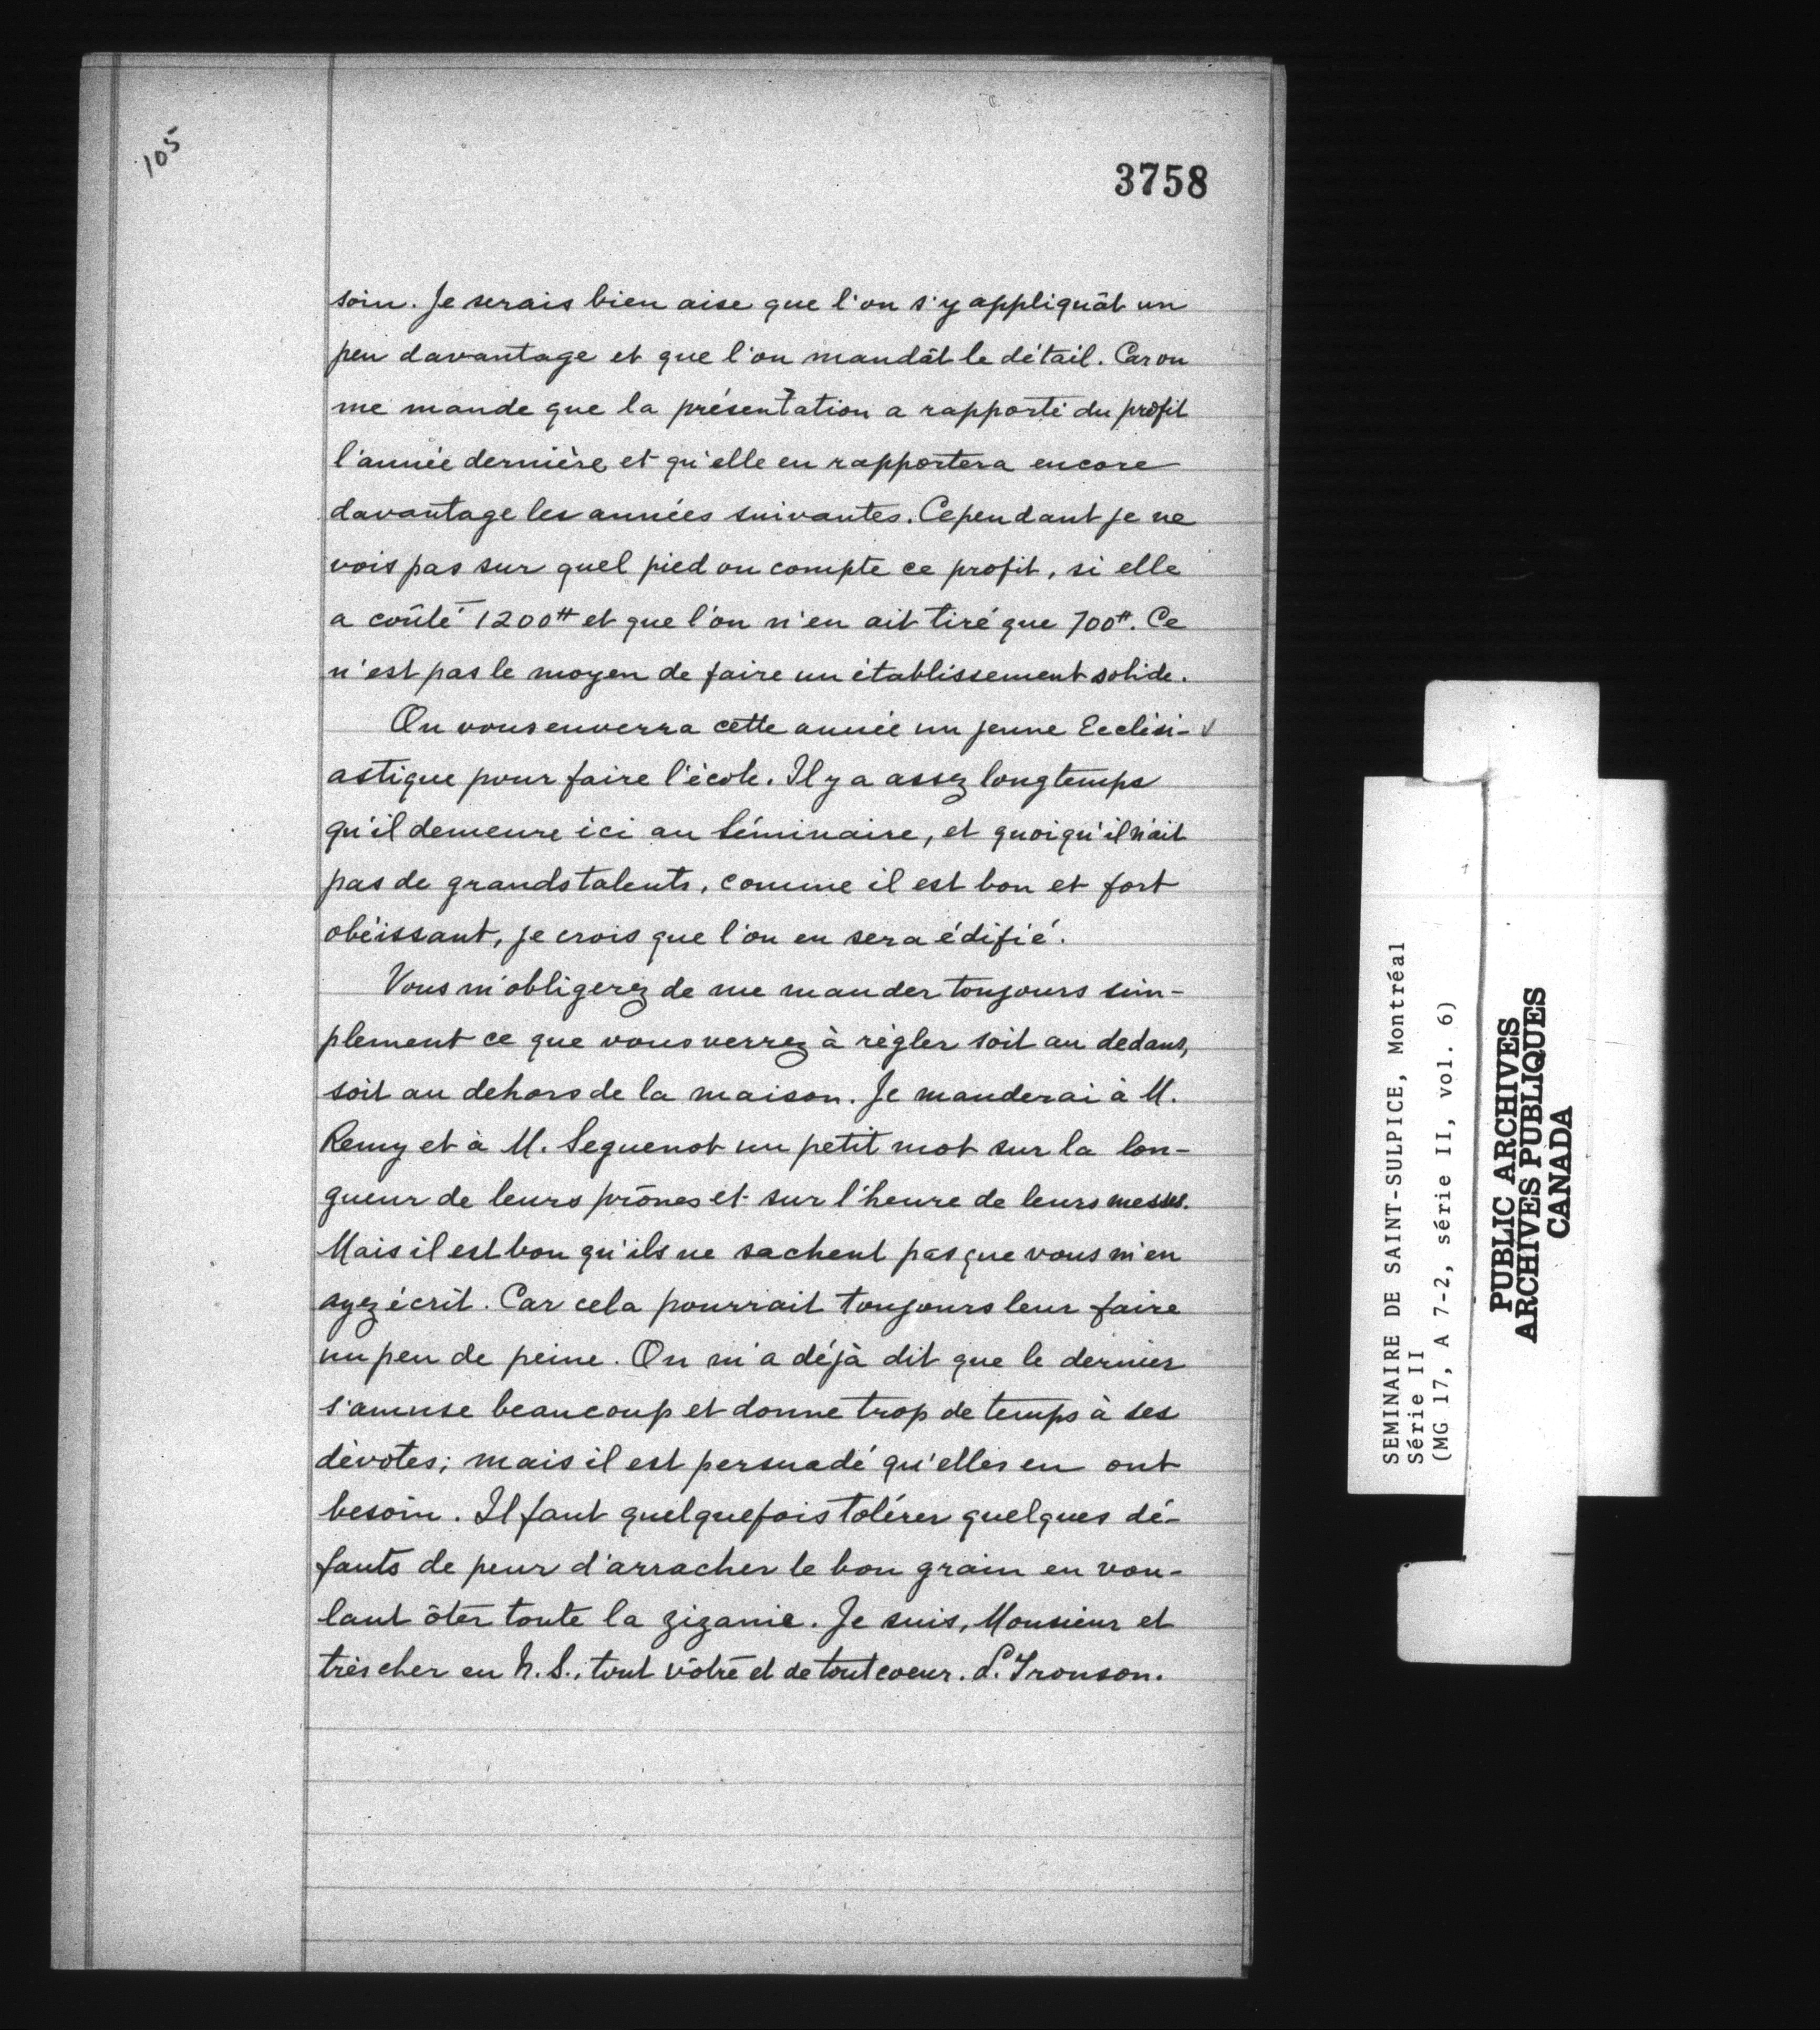 105
3758
soin. Je serais bien aise que l'on s'y appliquât un
peu davantage et que l'on mandât le détail. Car on
me mande que la présentation a rapporté du profit
l'année dernière et qu'elle en rapportera encore
davantage les années suivantes. Cependant je ne
vois pas sur quel pied on compte ce profit, si elle
a coûté 1200# et que l'on n'en ait tiré que 700#. Ce
n'est pas le moyen de faire un établissement solide.
On vous enverra cette année un jeune Ecclési-
astique pour faire l'école. Il y a assez longtemps
qu'il demeure ici au Séminaire, et quoiqu'il n'ait
pas de grands talents, comme il est bon et fort
obéissant, je crois que l'on en sera édifié.
Vous m'obligerez de me mander toujours sim-
plement ce que vous verrez à règler soit au dedans,
soit au dehors de la maison. Je manderai à M.
Remy et à M. Seguenot un petit mot sur la lon-
gueur de leurs prônes et sur l'heure de leurs messes.
Mais il est bon qu'ils ne sachent pas que vous m'en
ayez écrit. Car cela pourrait toujours leur faire
un peu de peine. On m'a déjà dit que le dernier
s'amuse beaucoup et donne trop de temps à ses
dévotes; mais il est persuadé qu'elles en ont
besoin. Il faut quelquefois tolérer quelques dé-
fauts de peur d'arracher le bon grain en vou-
lant ôter toute la zizanie. Je suis, Monsieur et
très cher en N. S., tout vôtre et de tout coeur. L. Tronson.
SEMINAIRE DE SAINT-SULPICE, Montréal
Série II
(MG 17, A 7-2, série II, vol. 6)
PUBLIC ARCHIVES
ARCHIVES PUBLIQUES
CANADA